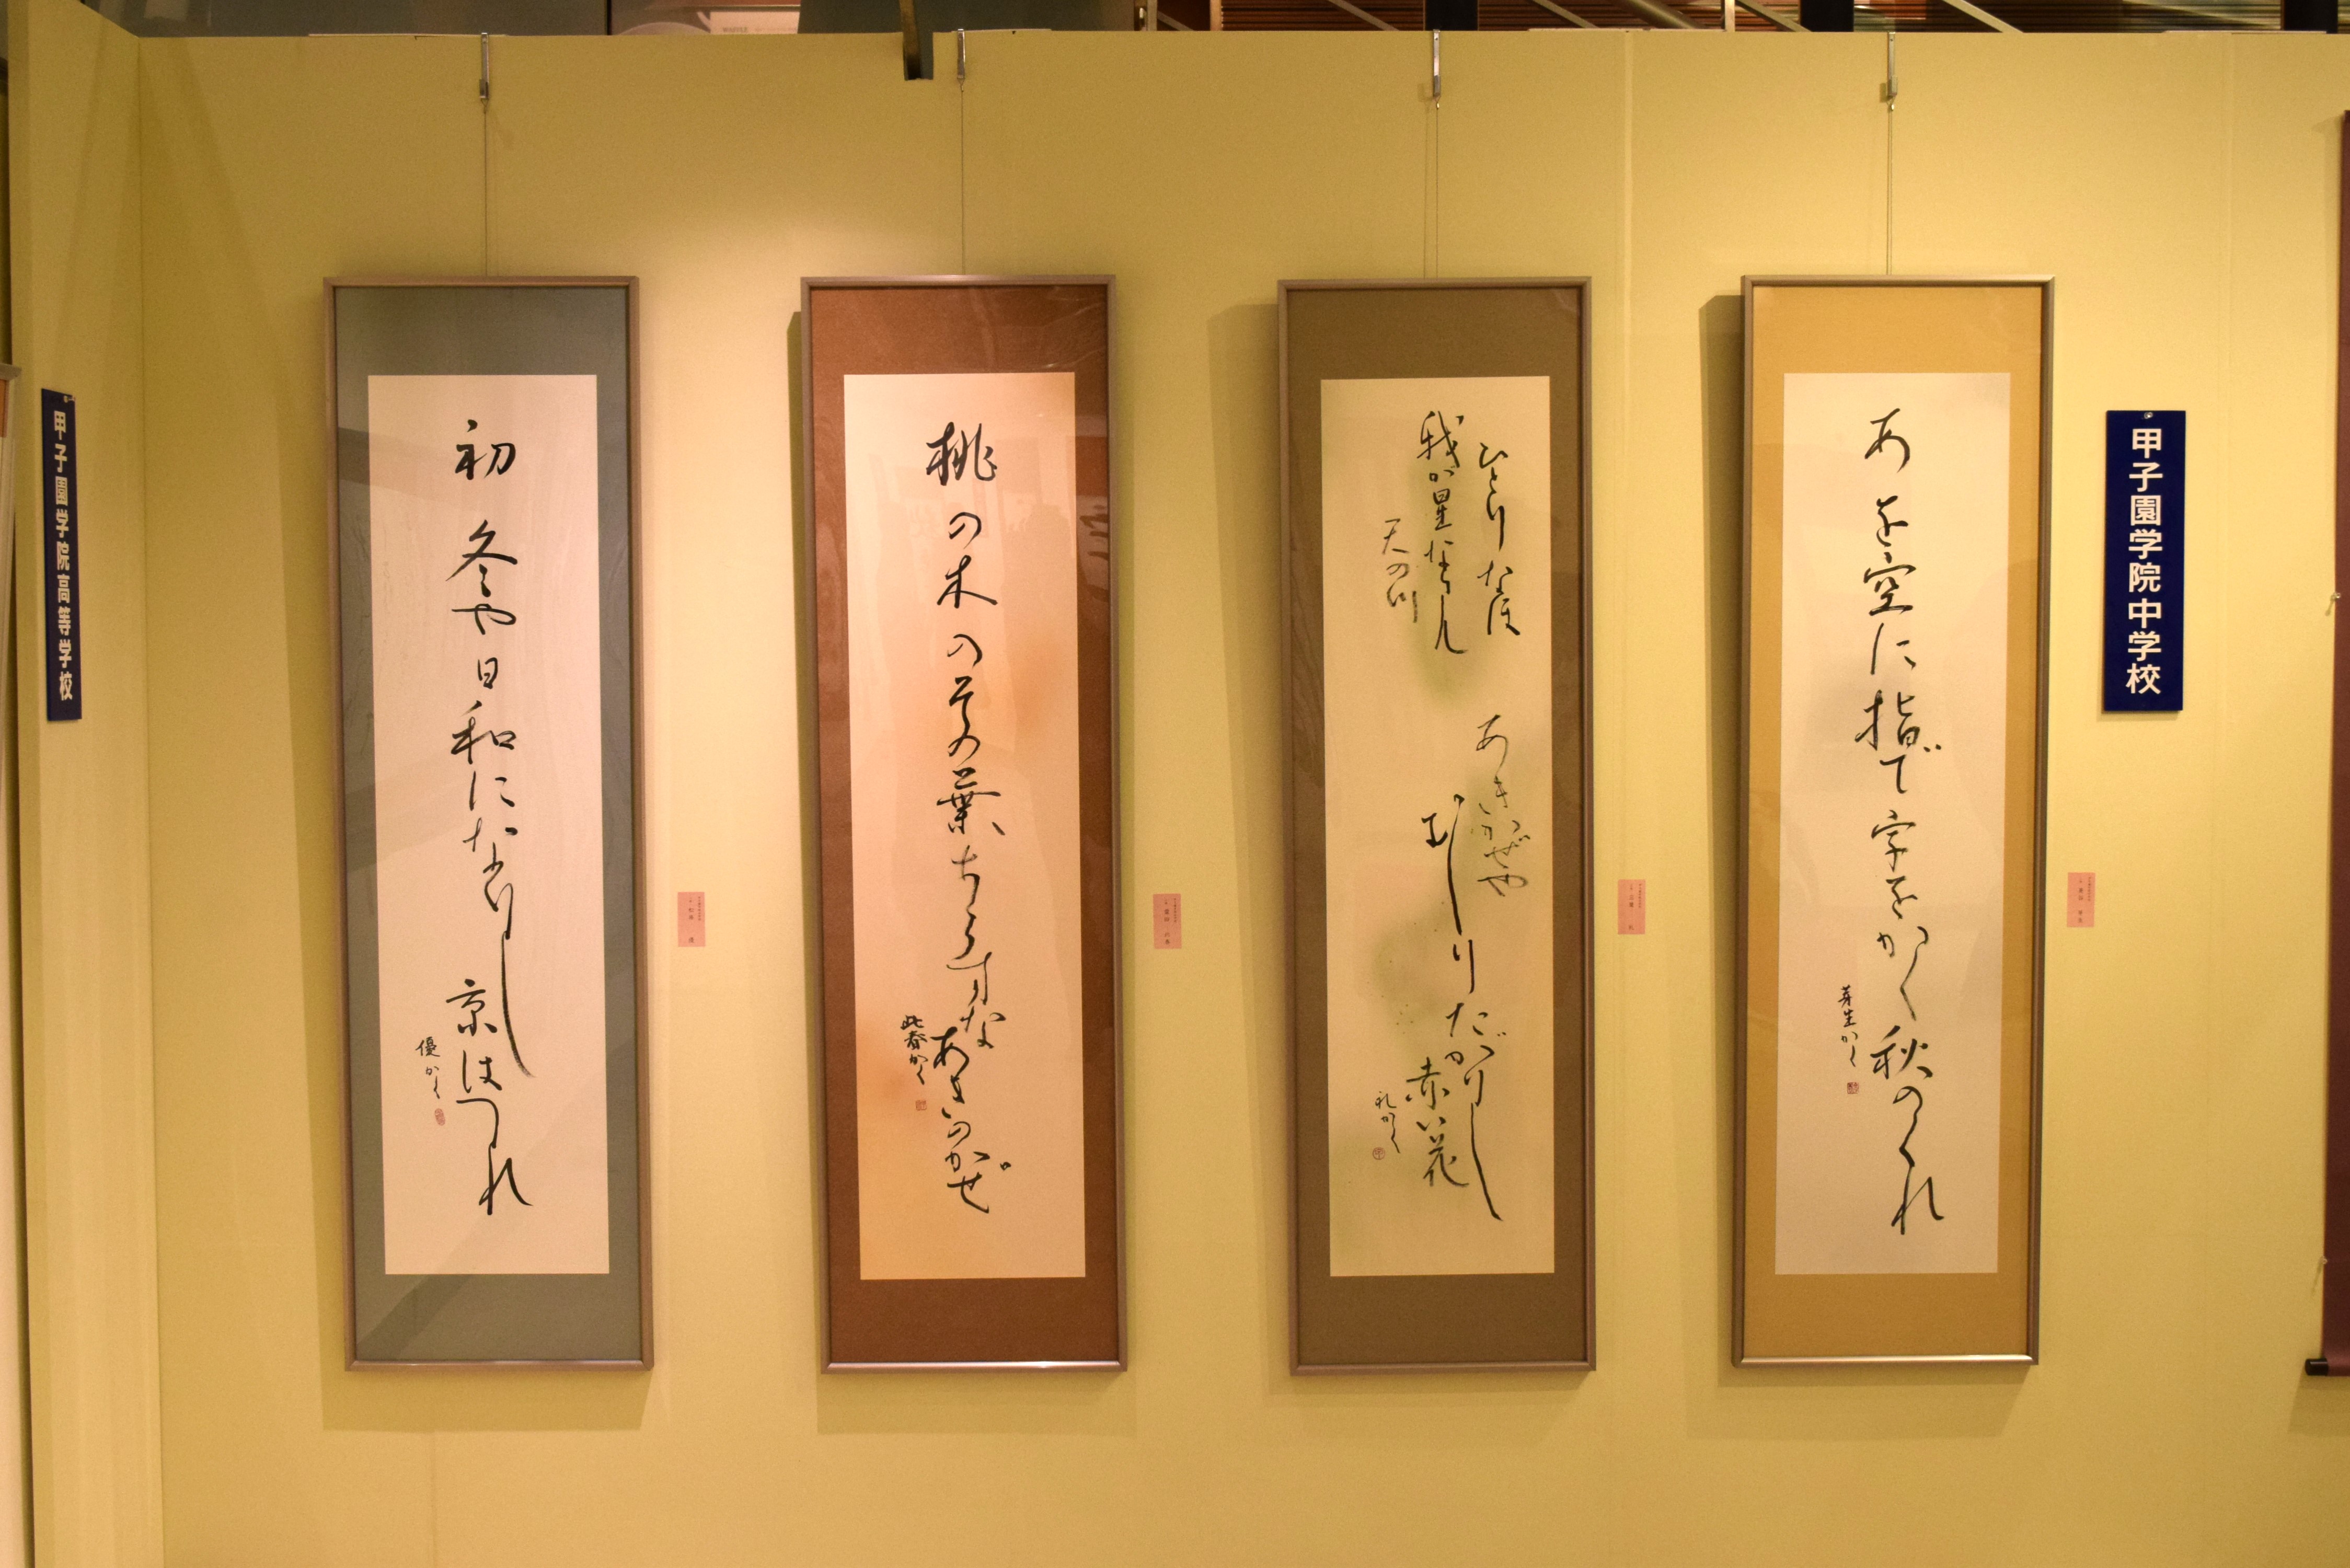 甲子園学院中学校
あを空に指で字をかく秋のくれ
芽生かく
ひとりなは
我が星ならん
天の川
あきかぜや
むしりたがりし
赤い花
礼かく
桃の木のその葉ちらすな
あきのかぜ
此春かく
初冬や日和になりし
京はつれ
優かく
甲子園学院高等学校